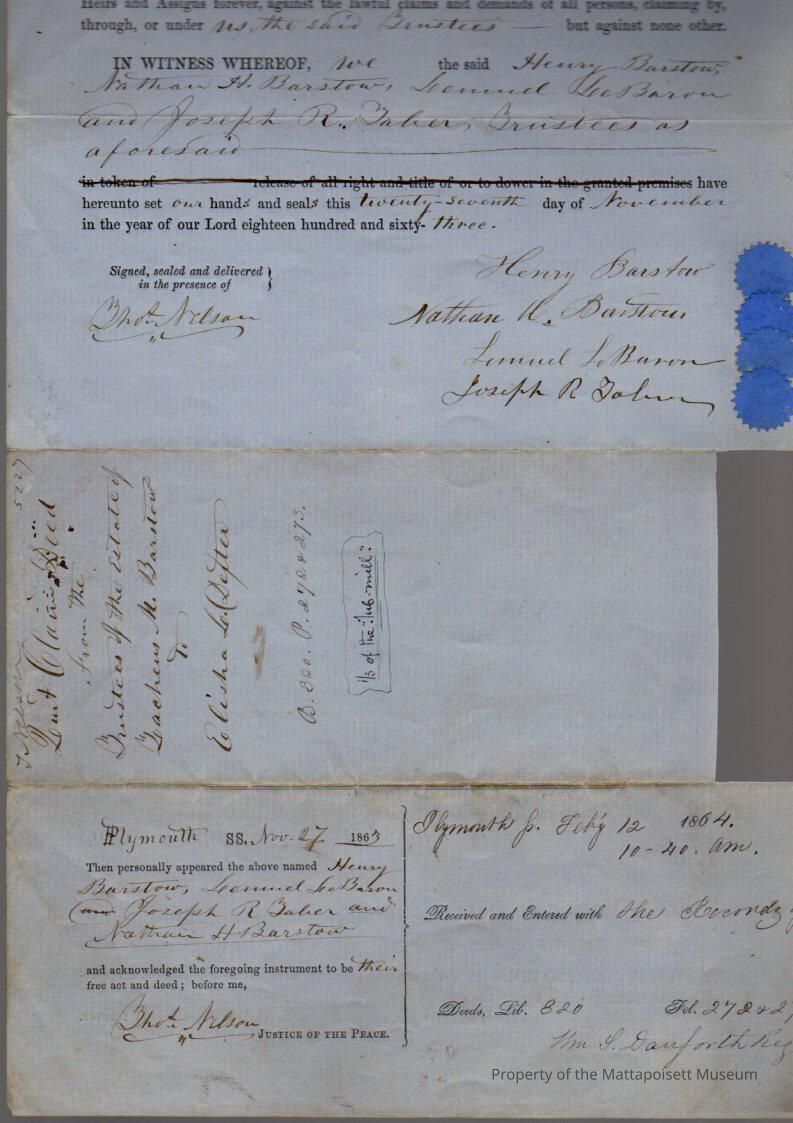 Heirs and Assigns forever, against the lawful claims and demands of all persons, claiming by,
through, or under us, the said Trustees — but against none other.
IN WITNESS WHEREOF, we the said Henry Barstow,
Nathan H. Barstow, Lemuel LeBaron
and Joseph R. Taber, Trustees as
aforesaid
in token of release of all right and title of or to dower in the granted premises have
hereunto set our hands and seals this twenty-seventh day of November
in the year of our Lord eighteen hundred and sixty-three.
Signed, sealed and delivered
in the presence of
Thos. Nelson
Henry Barstow
Nathan H. Barstow
Lemuel LeBaron
Joseph R Taber
T Nelson 5227
Quit Claim Deed
from the
Trustees of the Estate of
Zacheus M. Barstow
to
Elisha L.
B. 320. P. 272 & 273.
1/3 of the Tub-mill:
Plymouth SS. Nov. 27 1863
Then personally appeared the above named Henry
Barstow, Lemuel LeBaron
and Joseph R Taber and
Nathan H Barstow
and acknowledged the foregoing instrument to be their
free act and deed; before me,
Thos. Nelson
JUSTICE OF THE PEACE.
Plymouth ss. Feb'y 12 1864.
10-40. am.
Received and Entered with the Records
Deeds, Lib. 320 Fol. 272 & 27
Wm S. Danforth Reg
Property of the Mattapoisett Museum